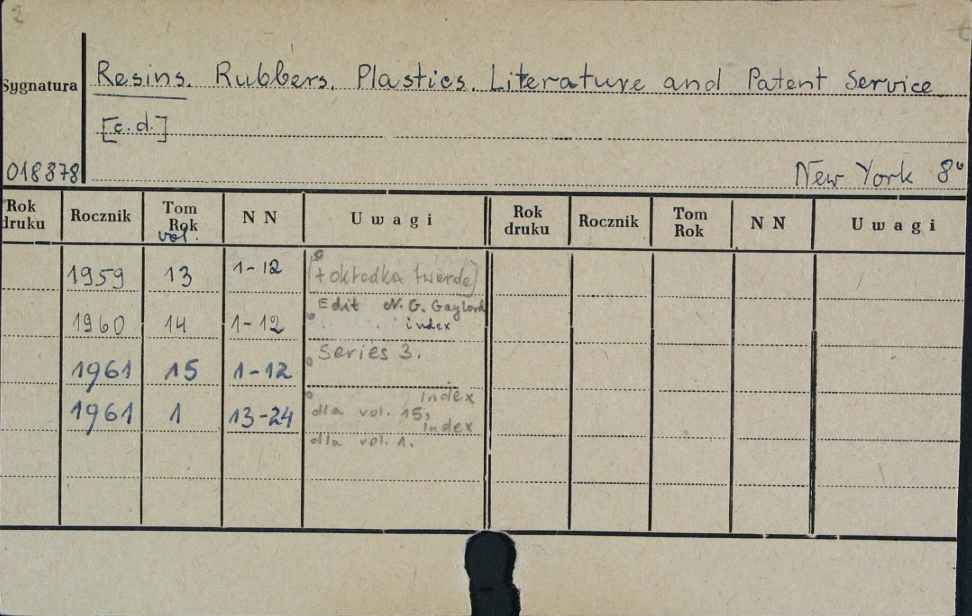 2
Sygnatura Resins. Rubbers. Plastics. Literature and Patent Service
[c.d.]
018878 New York 8°
Rok druku Rocznik Tom Rok vol. N N Uwagi Rok druku Rocznik Tom Rok N N Uwagi
1959 13 1-12 [+ okładka twarda]
Edit N.G. Gaylord
1960 14 1-12 index
Series 3.
1961 15 1-12
index
1961 1 13-24 dla vol. 15,
index
dla vol. 1.